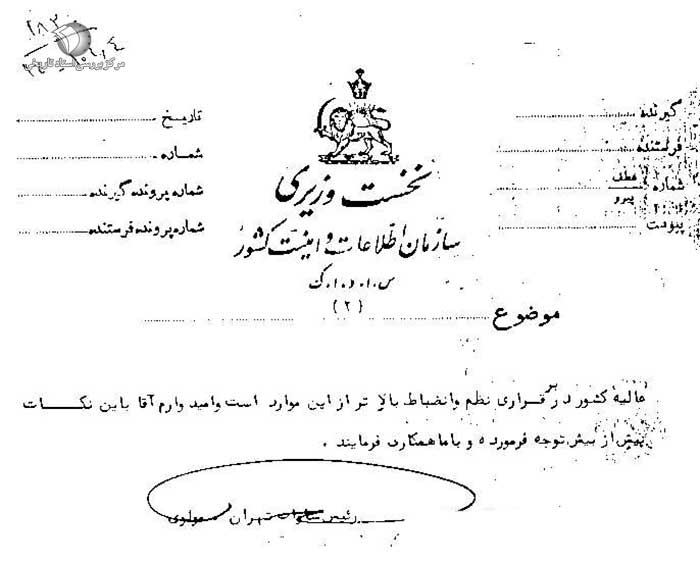 ۲۸۳
مرکز بررسی اسناد تاریخی
گیرنده
فرستنده
شماره عطف
پیرو
پیوست
تاریخ
شماره
شماره پرونده گیرنده
شماره پرونده فرستنده
نخست وزیری
سازمان اطلاعات و امنیت کشور
س.ا.و.ا.ک
(۲)
موضوع
عالیه کشور در برقراری نظم وانضباط بالا تر از این موارد است وامید وارم آقا باین نکات
بیش از بیش توجه فرموده و باما همکاری فرمایند .
رئیس ساواک تهران مولوی